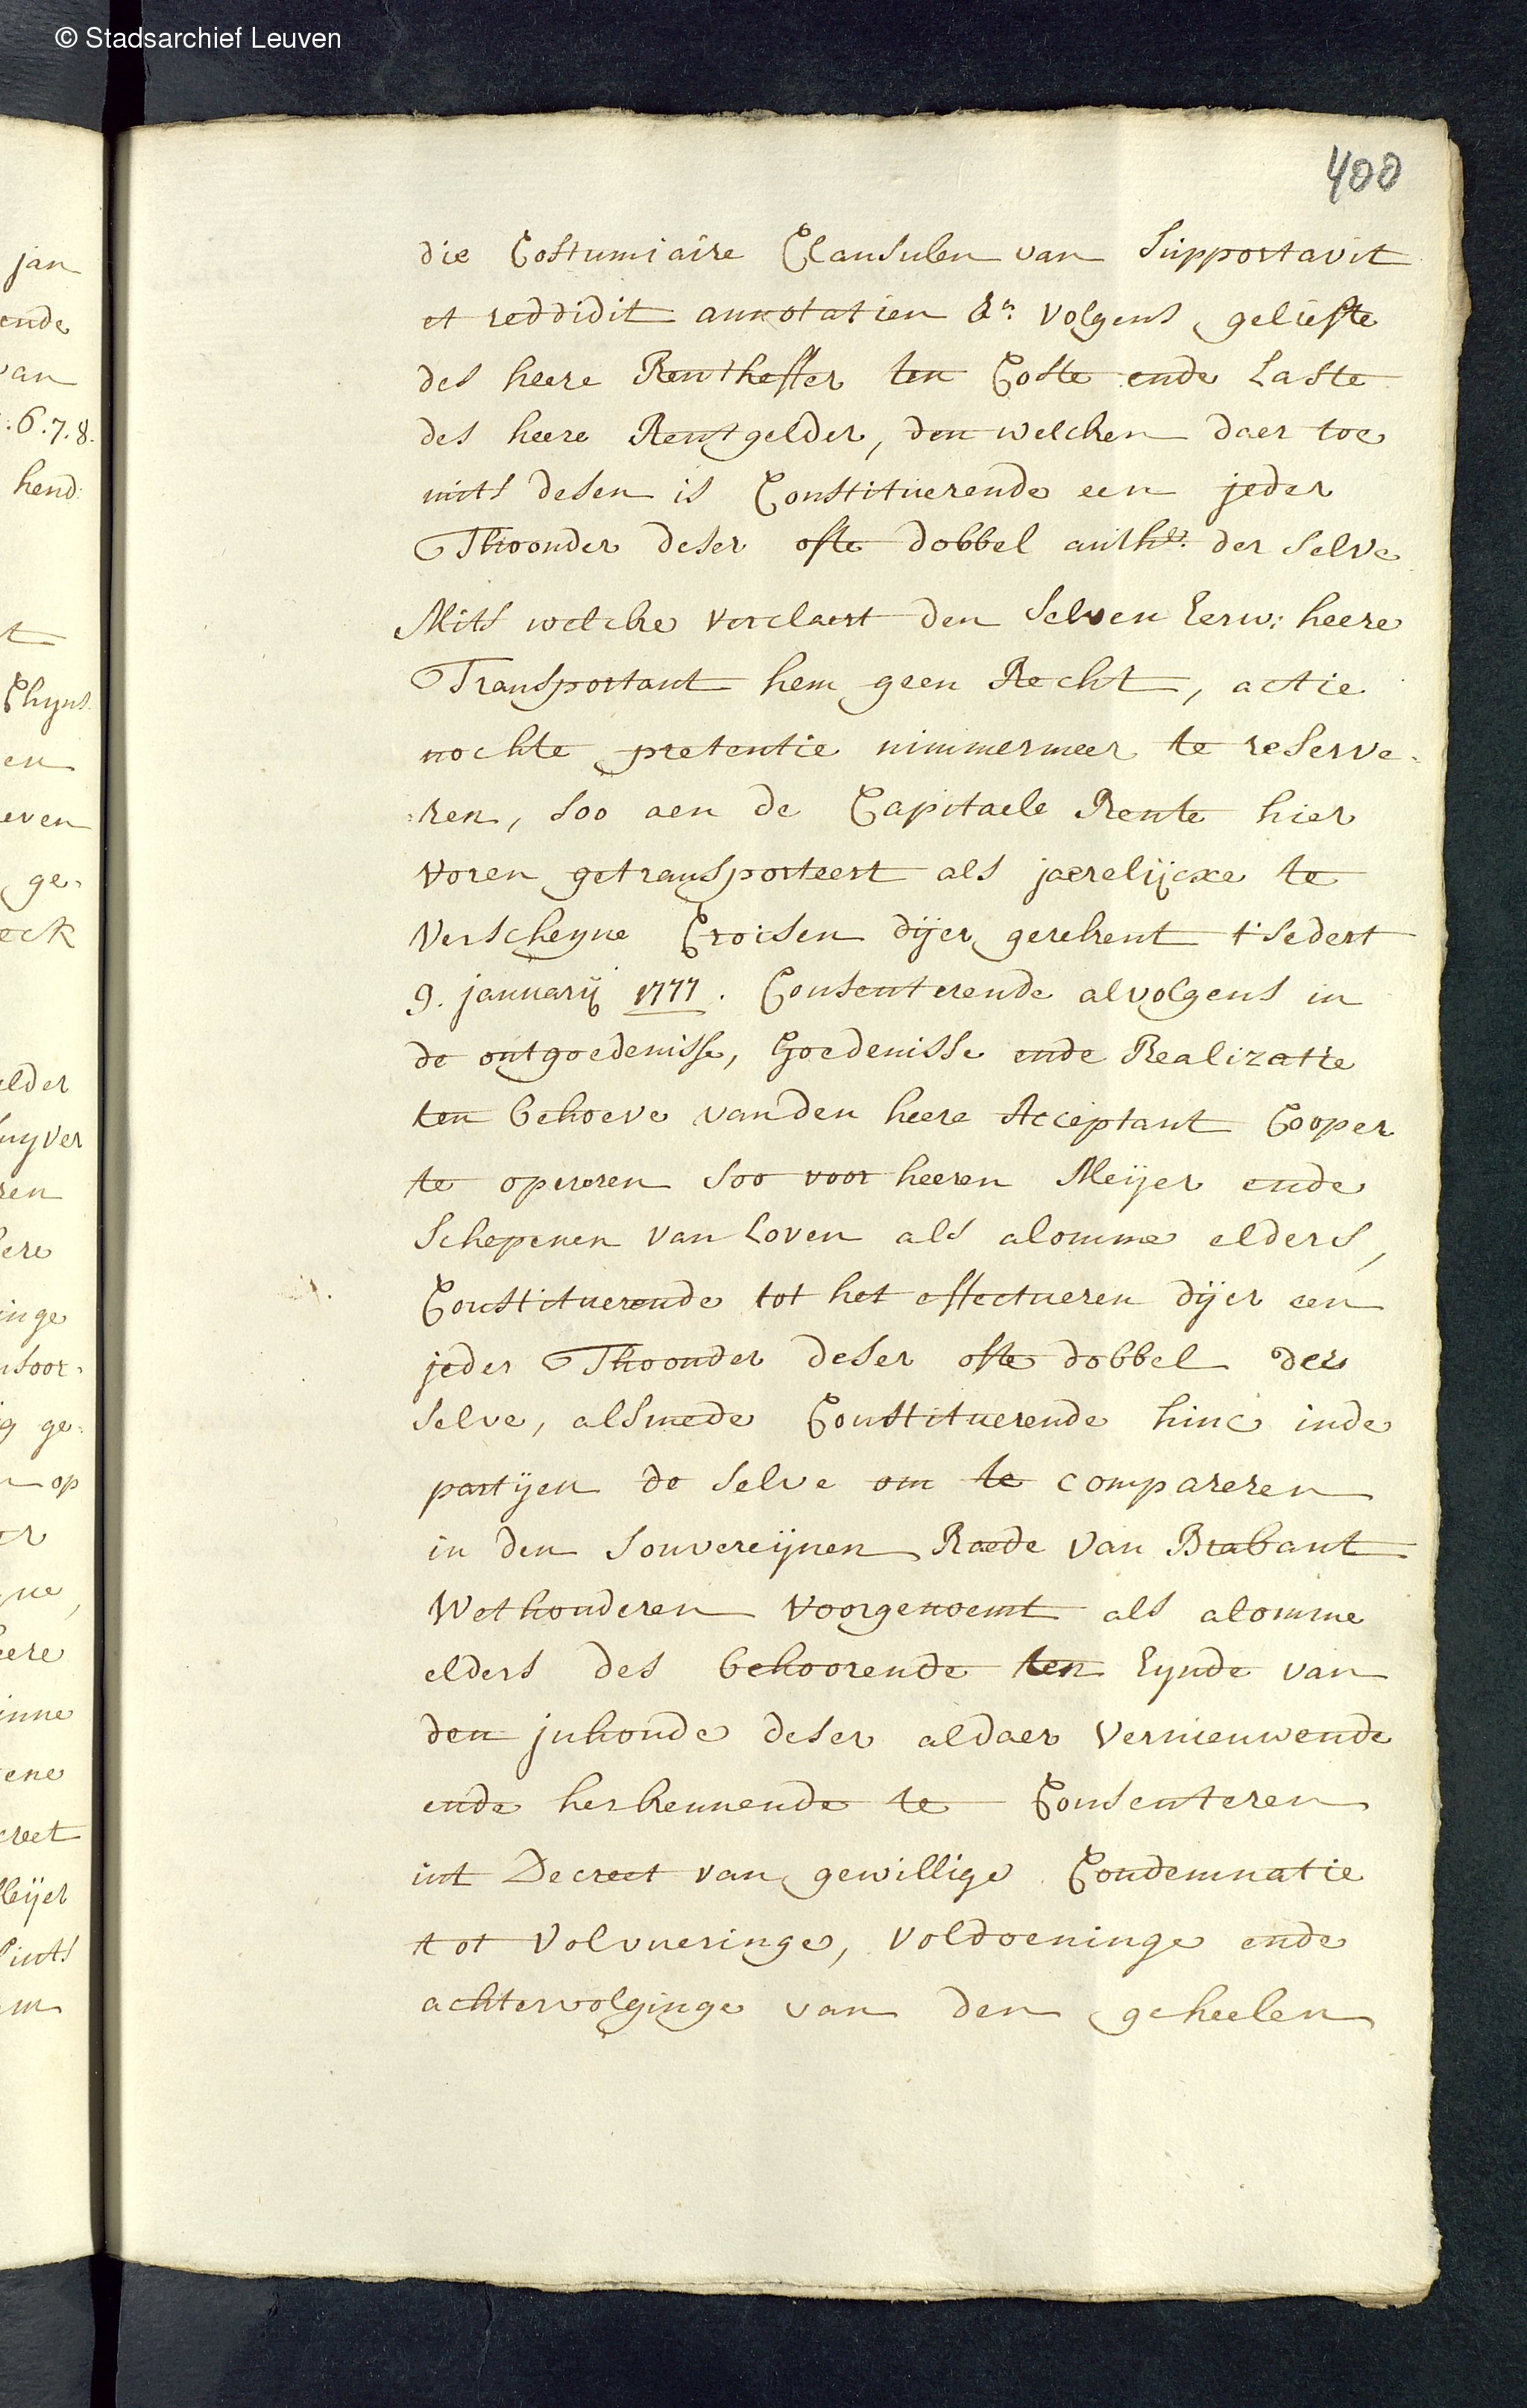 © Stadsarchief Leuven
400
jan
ende
van
:6.7.8.
hend:
t
Chyns
en
even
ge=
eck
elder
uyver
ren
ere
inge
nsoor=
g ge=
op
er
ne,
eere
inne
ene
creet
Meijer
m
die Costumiaire Clausulen van Supportavit
et reddidit annotatien &a. volgens geliefte
des heere Rentheffer ten Coste ende Laste
des heere Rentgelder, den welcken daer toe
mits desen is Constituerende een jeder
Thoonder deser ofte dobbel auth: der selve
Mits welcke verclaert den selven Eerw: heere
Transportant hem geen Recht, actie
nochte pretentie nimmermeer te reserve=
=ren, soo aen de Capitaele Rente hier
voren getransporteert als jaerelijcxe te
verscheyne Croisen dijer gerekent t'sedert
9. januarij 1777. Consenterende alvolgens in
de ontgoedenisse, Goedenisse ende Realizatie
ten behoeve vanden heere Acceptant Cooper
te opereren soo voor heeren Meijer ende
Schepenen van Loven als alomme elders,
Constituerende tot het effectueren dijer een
jeder Thoonder deser ofte dobbel der
selve, alsmede Constituerende hinc inde
partijen de selve om te compareren
in den Souvereijnen Raede van Brabant
Wethouderen voorgenoemt als alomme
elders des behoorende ten Eynde van
den jnhoude deser aldaer vernieuwende
ende herkennende te Consenteren
int Decreet van gewillige Condemnatie
tot volvueringe, voldoeninge ende
achtervolginge van den geheelen